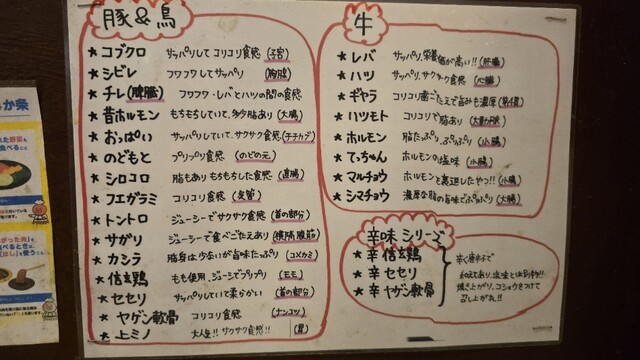 豚&鳥
★ コブクロ サッパリしてコリコリ食感 (子宮)
★ シビレ フワフワしてサッパリ (胸腺)
★ チレ(脾臓) フワフワ・レバとハツの間の食感
★ 昔ホルモン もちもちしていて、多少脂あり (大腸)
★ おっぱい サッパリしていて、サクサク食感
★ のどもと プリップリ食感 (のどの元)
★ シロコロ 脂もありもちもちした食感 (直腸)
★ フエガラミ コリコリ食感 (気管)
★ トントロ ジューシーでサクサク食感 (首の部分)
★ サガリ ジューシーで食べごたえあり (横隔膜筋)
★ カシラ 脂身は少ないが旨味たっぷり (コメカミ)
★ 信玄鶏 もも使用、ジューシーでプリプリ (モモ)
★ セセリ サッパリしていて柔らかい (首の部分)
★ ヤゲン軟骨 コリコリ食感 (ナンコツ)
★ 上ミノ 大人気!! サクサク食感!! (胃)
牛
★ レバ サッパリ、栄養価が高い!! (肝臓)
★ ハツ サッパリ、サクサク食感 (心臓)
★ ギヤラ コリコリ歯ごたえで旨みも濃厚
★ ハツモト コリコリで脂あり (大動脈)
★ ホルモン 脂たっぷり、ぷりぷり (小腸)
★ てっちゃん ホルモンの塩味 (小腸)
★ マルチョウ ホルモンを裏返したやつ!! (小腸)
★ シマチョウ 濃厚な脂の旨味でぷりぷり (大腸)
辛味シリーズ
★ 辛 信玄鶏
★ 辛 セセリ
★ 辛 ヤゲン軟骨
辛く唐辛子で
和えており、塩味とは別物!!
焼き上がり、コショウをつけて
召し上がれ!!
か条